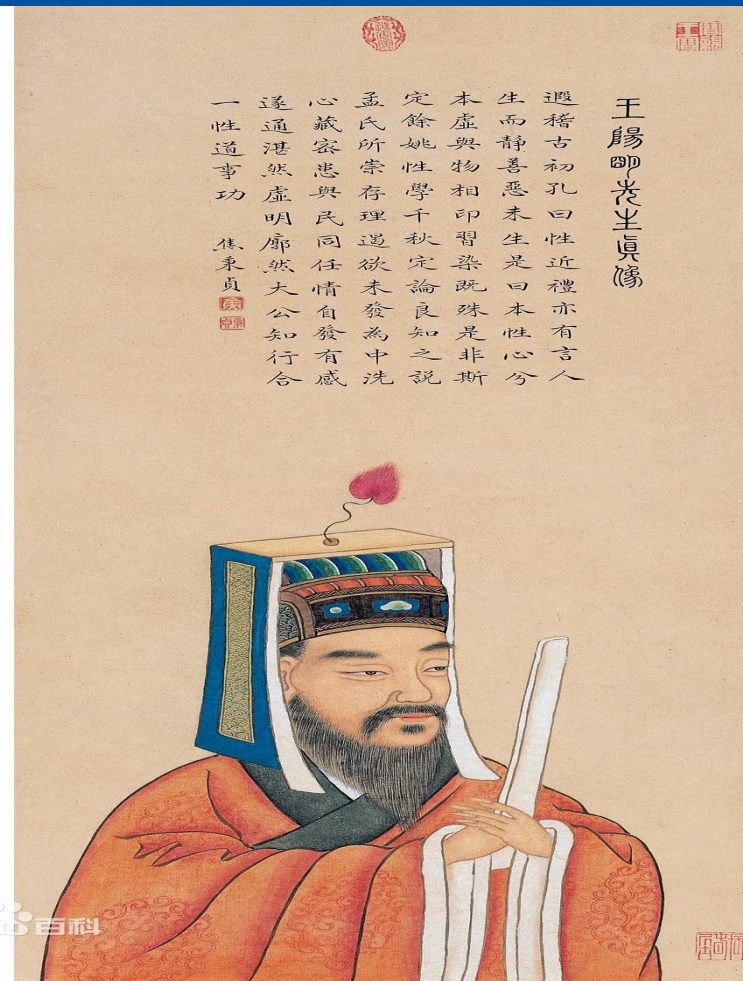 王陽明先生眞像
遐稽古初孔曰性近禮亦有言人
生而靜善惡未生是曰本性心兮
本虛與物相印習染既殊是非斯
定餘姚性學千秋定論良知之説
孟氏所崇存理遏欲未發為中洗
心藏密患與民同任情自發有感
遂通湛然虛明廓然大公知行合
一性道事功 焦秉貞
百科